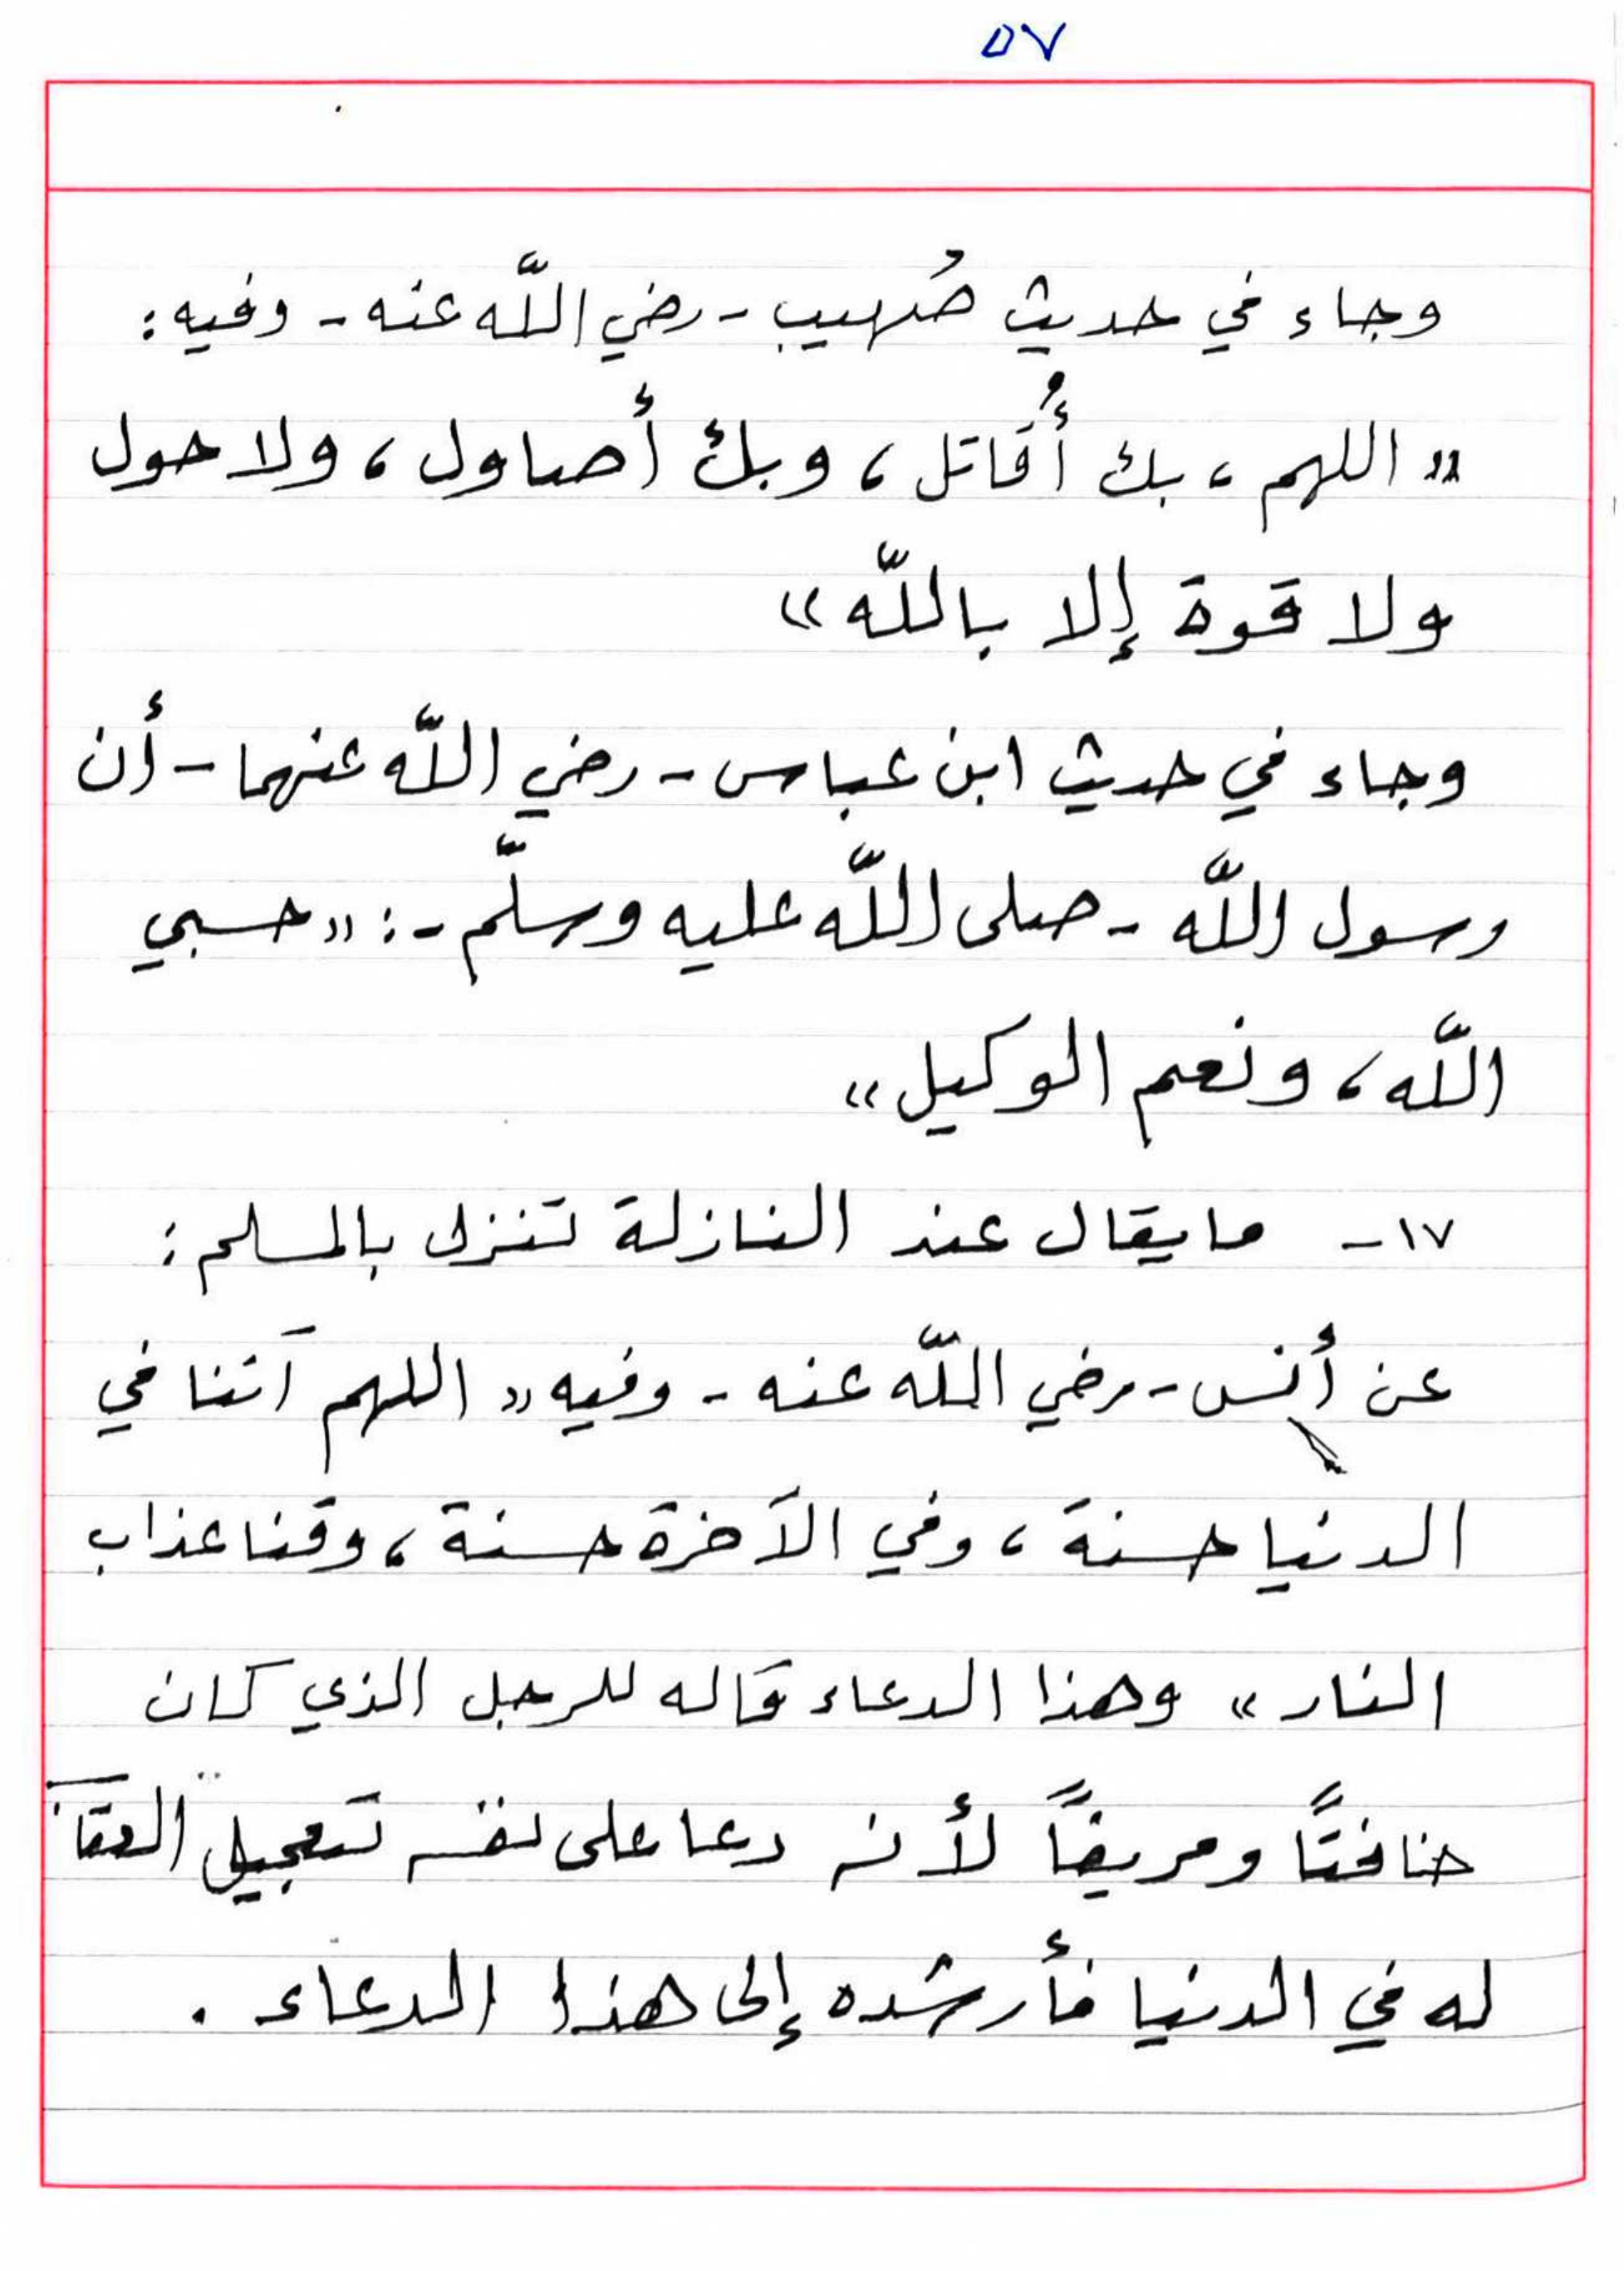 ٥٧
وجاء في حديث صُهيب - رضي اللّه عنه - وفيه:
« اللهم، بك أُقاتل، وبك أصاول، ولا حول
ولا قوة إلا باللّه »
وجاء في حديث ابن عباس - رضي اللّه عنهما - أن
رسول اللّه - صلى اللّه عليه وسلّم -: « حسبي
اللّه، ونعم الوكيل »
١٧- ما يقال عند النازلة تنزل بالمسلم:
عن أنس - رضي اللّه عنه - وفيه « اللهم آتنا في
الدنيا حسنة، وفي الآخرة حسنة، وقنا عذاب
النار » وهذا الدعاء قاله للرجل الذي كان
خافتًا ومريضًا لأنه دعا على نفسه تعجيل
له في الدنيا فأرشده إلى هذا الدعاء .